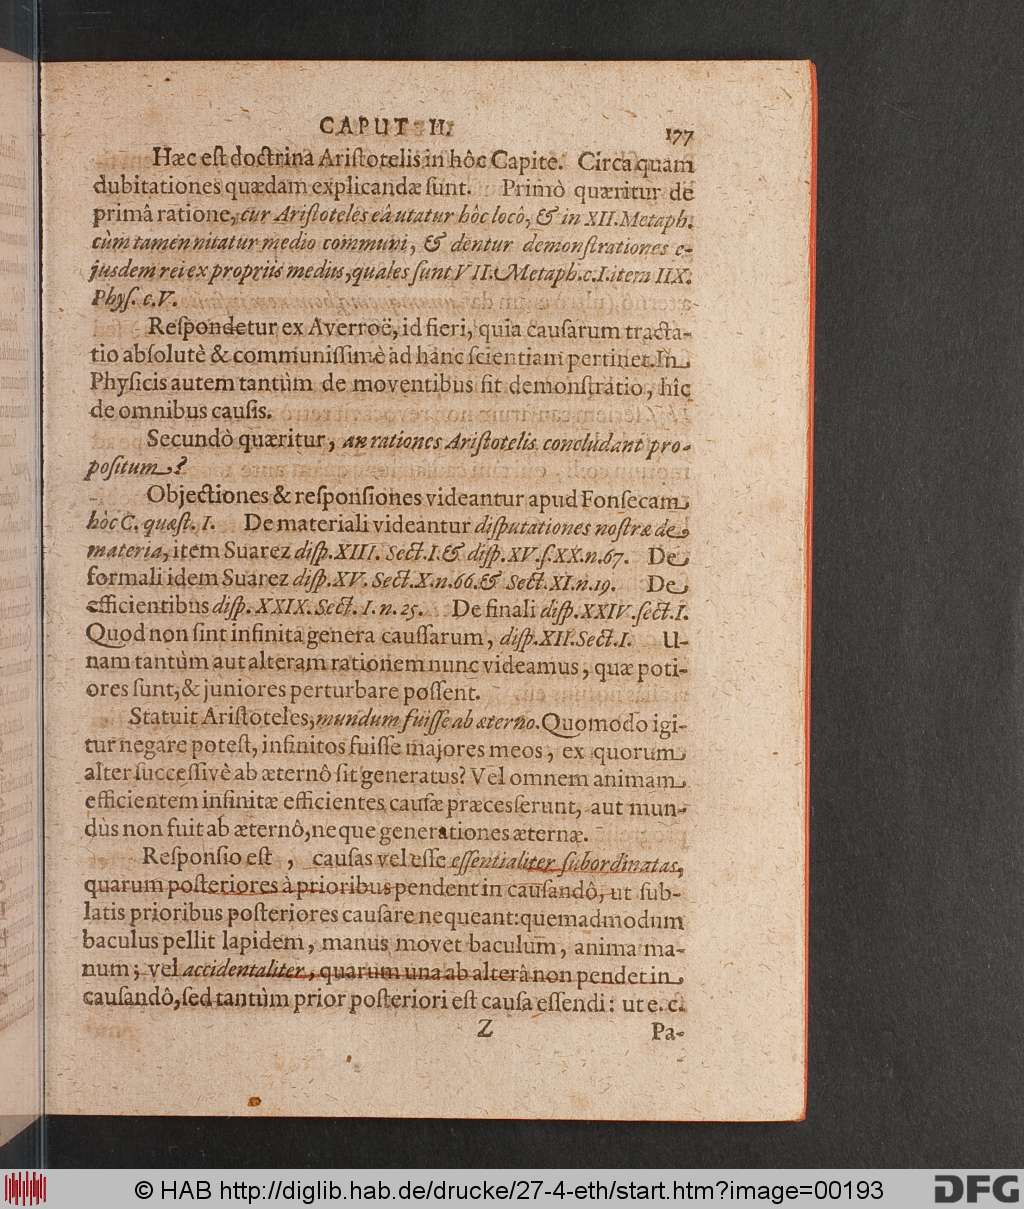 CAPUT II. 177
Hæc eſt doctrina Ariſtotelis in hôc Capite. Circa quam
dubitationes quædam explicandæ ſunt. Primò quæritur de
primâ ratione, cur Ariſtoteles eâ utatur hôc locô, & in XII. Metaph.
cùm tamen nitatur medio communi, & dentur demonſtrationes e-
jusdem rei ex propriis mediis, quales ſunt VII. Metaph. c. I. item IIX.
Phyſ. c. V.
Reſpondetur ex Averroë, id fieri, quia cauſarum tracta-
tio abſolutè & communiſſimè ad hanc ſcientiam pertinet. In
Phyſicis autem tantùm de moventibus fit demonſtratio, hîc
de omnibus cauſis.
Secundò quæritur, an rationes Ariſtotelis concludant pro-
poſitum?
Objectiones & reſponſiones videantur apud Fonſecam
hôc C. quæſt. I. De materiali videantur diſputationes noſtræ de
materia, item Suarez diſp. XIII. Sect. I. & diſp. XV. ſ. XX. n. 67. De
formali idem Suarez diſp. XV. Sect. X. n. 66. & Sect. XI. n. 19. De
efficientibus diſp. XXIX. Sect. I. n. 25. De finali diſp. XXIV. ſect. I.
Quod non ſint infinita genera cauſſarum, diſp. XII. Sect. I. U-
nam tantùm aut alteram rationem nunc videamus, quæ poti-
ores ſunt, & juniores perturbare poſſent.
Statuit Ariſtoteles, mundum fuiſſe ab æterno. Quomodo igi-
tur negare poteſt, infinitos fuiſſe majores meos, ex quorum
alter ſucceſſivè ab æternô ſit generatus? Vel omnem animam
efficientem infinitæ efficientes cauſæ præcesſerunt, aut mun-
dus non fuit ab æternô, neque generationes æternæ.
Reſponſio eſt, cauſas vel eſſe eſſentialiter ſubordinatas,
quarum poſteriores à prioribus pendent in cauſandô, ut ſub-
latis prioribus poſteriores cauſare nequeant: quemadmodum
baculus pellit lapidem, manus movet baculum, anima ma-
num; vel accidentaliter, quarum una ab alterâ non pendet in
cauſandô, ſed tantùm prior poſteriori eſt cauſa eſſendi: ut e. c.
Z Pa-
© HAB http://diglib.hab.de/drucke/27-4-eth/start.htm?image=00193
DFG